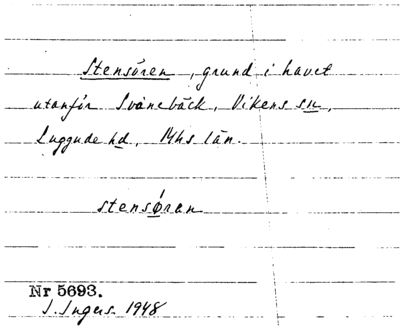 Stensören, grund i havet
utanför Svanebäck, Vikens sn,
Luggude hd, Mhs län.
stensøran
Nr 5693.
I. Ingers. 1948